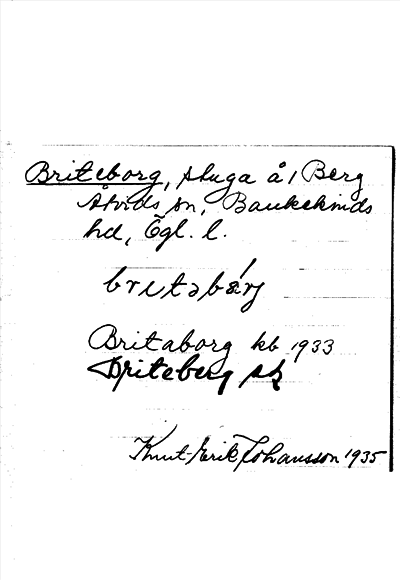 Briteborg, stuga å, Berg
Åtvids sn, Bankekinds
hd, Ögl. l.
britəbærj
Britaborg kb 1933
Briteberg sk
Knut-Erik Johansson 1935